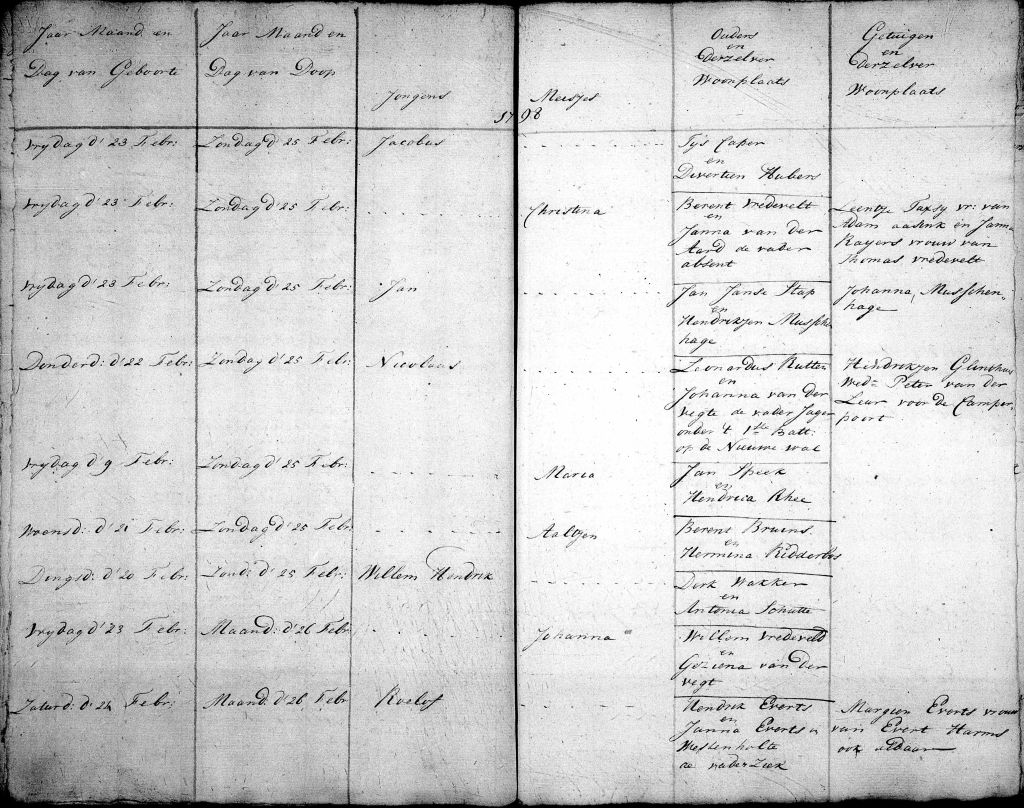 Jaar Maand en
Dag van Geboorte
Jaar Maand en
Dag van Doop
Jongens
Meisjes
Ouders
en
derzelver
Woonplaats
Getuigen
en
derzelver
Woonplaats
1798
Vrydag d' 23 Febr:
Zondag d' 25 Febr:
Jacobus
Tys Caper
en
Divertien Hubers
Vrydag d' 23 Febr:
Zondag d' 25 Febr:
Christina
Berent Vredevelt
en
Janna van der
Aard de vader
absent
Leentje Taxsy vr: van
Adam aasink en Janna
Rayers vrouw van
Thomas vredevelt
Vrydag d' 23 Febr:
Zondag d' 25 Febr:
Jan
Jan Janse Stap
en
Hendrikjen Musschen
hage
Johanna Musschen-
hage
Donderd: d' 22 Febr:
Zondag d' 25 Febr:
Nicolaas
Leonardus Rutten
en
Johanna van der
Vegte de vader Jager
onder 't 1ste Batt:
op de Nieuwe wal
Hendrikjen
Wedn Peter van der
Leur voor de Camper-
poort
Vrydag d' 9 Febr:
Zondag d' 25 Febr:
Maria
Jan Speek
en
Hendrica Rhee
Woensd: d' 21 Febr:
Zondag d' 25 Febr:
Aaltjen
Berent Bruins
en
Hermina Ridderbos
Dingsd: d' 20 Febr:
Zond: d' 25 Febr:
Willem Hendrik
Derk Wakker
en
Antonia Schutte
Vrydag d' 23 Febr:
Maand: d' 26 Febr:
Johanna
Willem Vredeveld
en
Geziena van der
Vegt
Zaturd: d' 24 Febr:
Maand: d' 26 Febr
Roelof
Hendrik Everts
en
Janna Everts
Westenholte
de vader Ziek
Margien Everts vrouw
van Evert Harms
ook aldaar